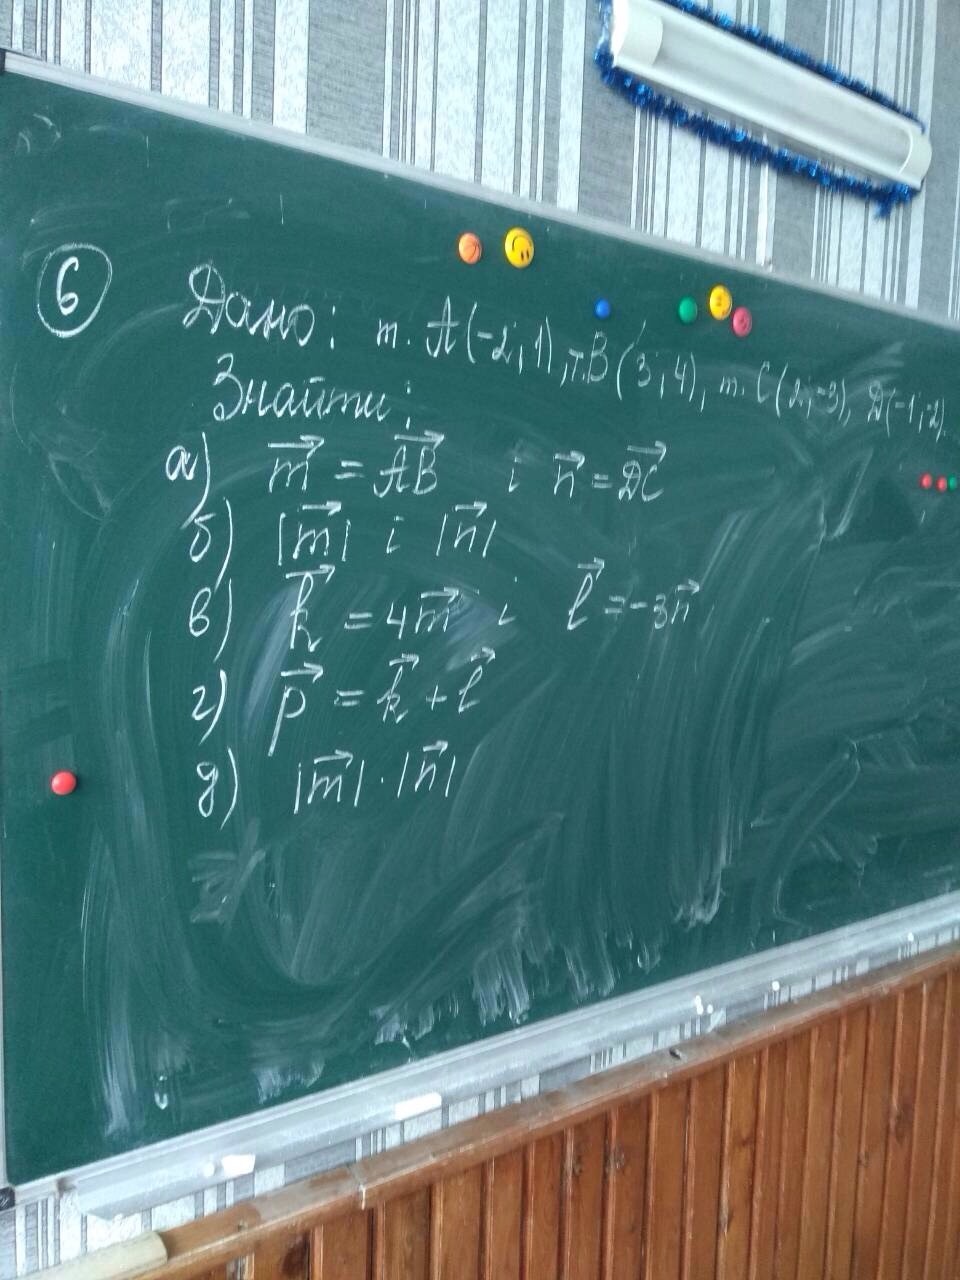 6
Дано: т. А(-2; 1), т. В(3; 4), т. С(2; -3), D(-1; -2).
Знайти:
а) m⃗ = AB⃗ і n⃗ = DC⃗
б) |m⃗| і |n⃗|
в) k⃗ = 4m⃗ і ℓ⃗ = -3n⃗
г) p⃗ = k⃗ + ℓ⃗
д) |m⃗| · |n⃗|